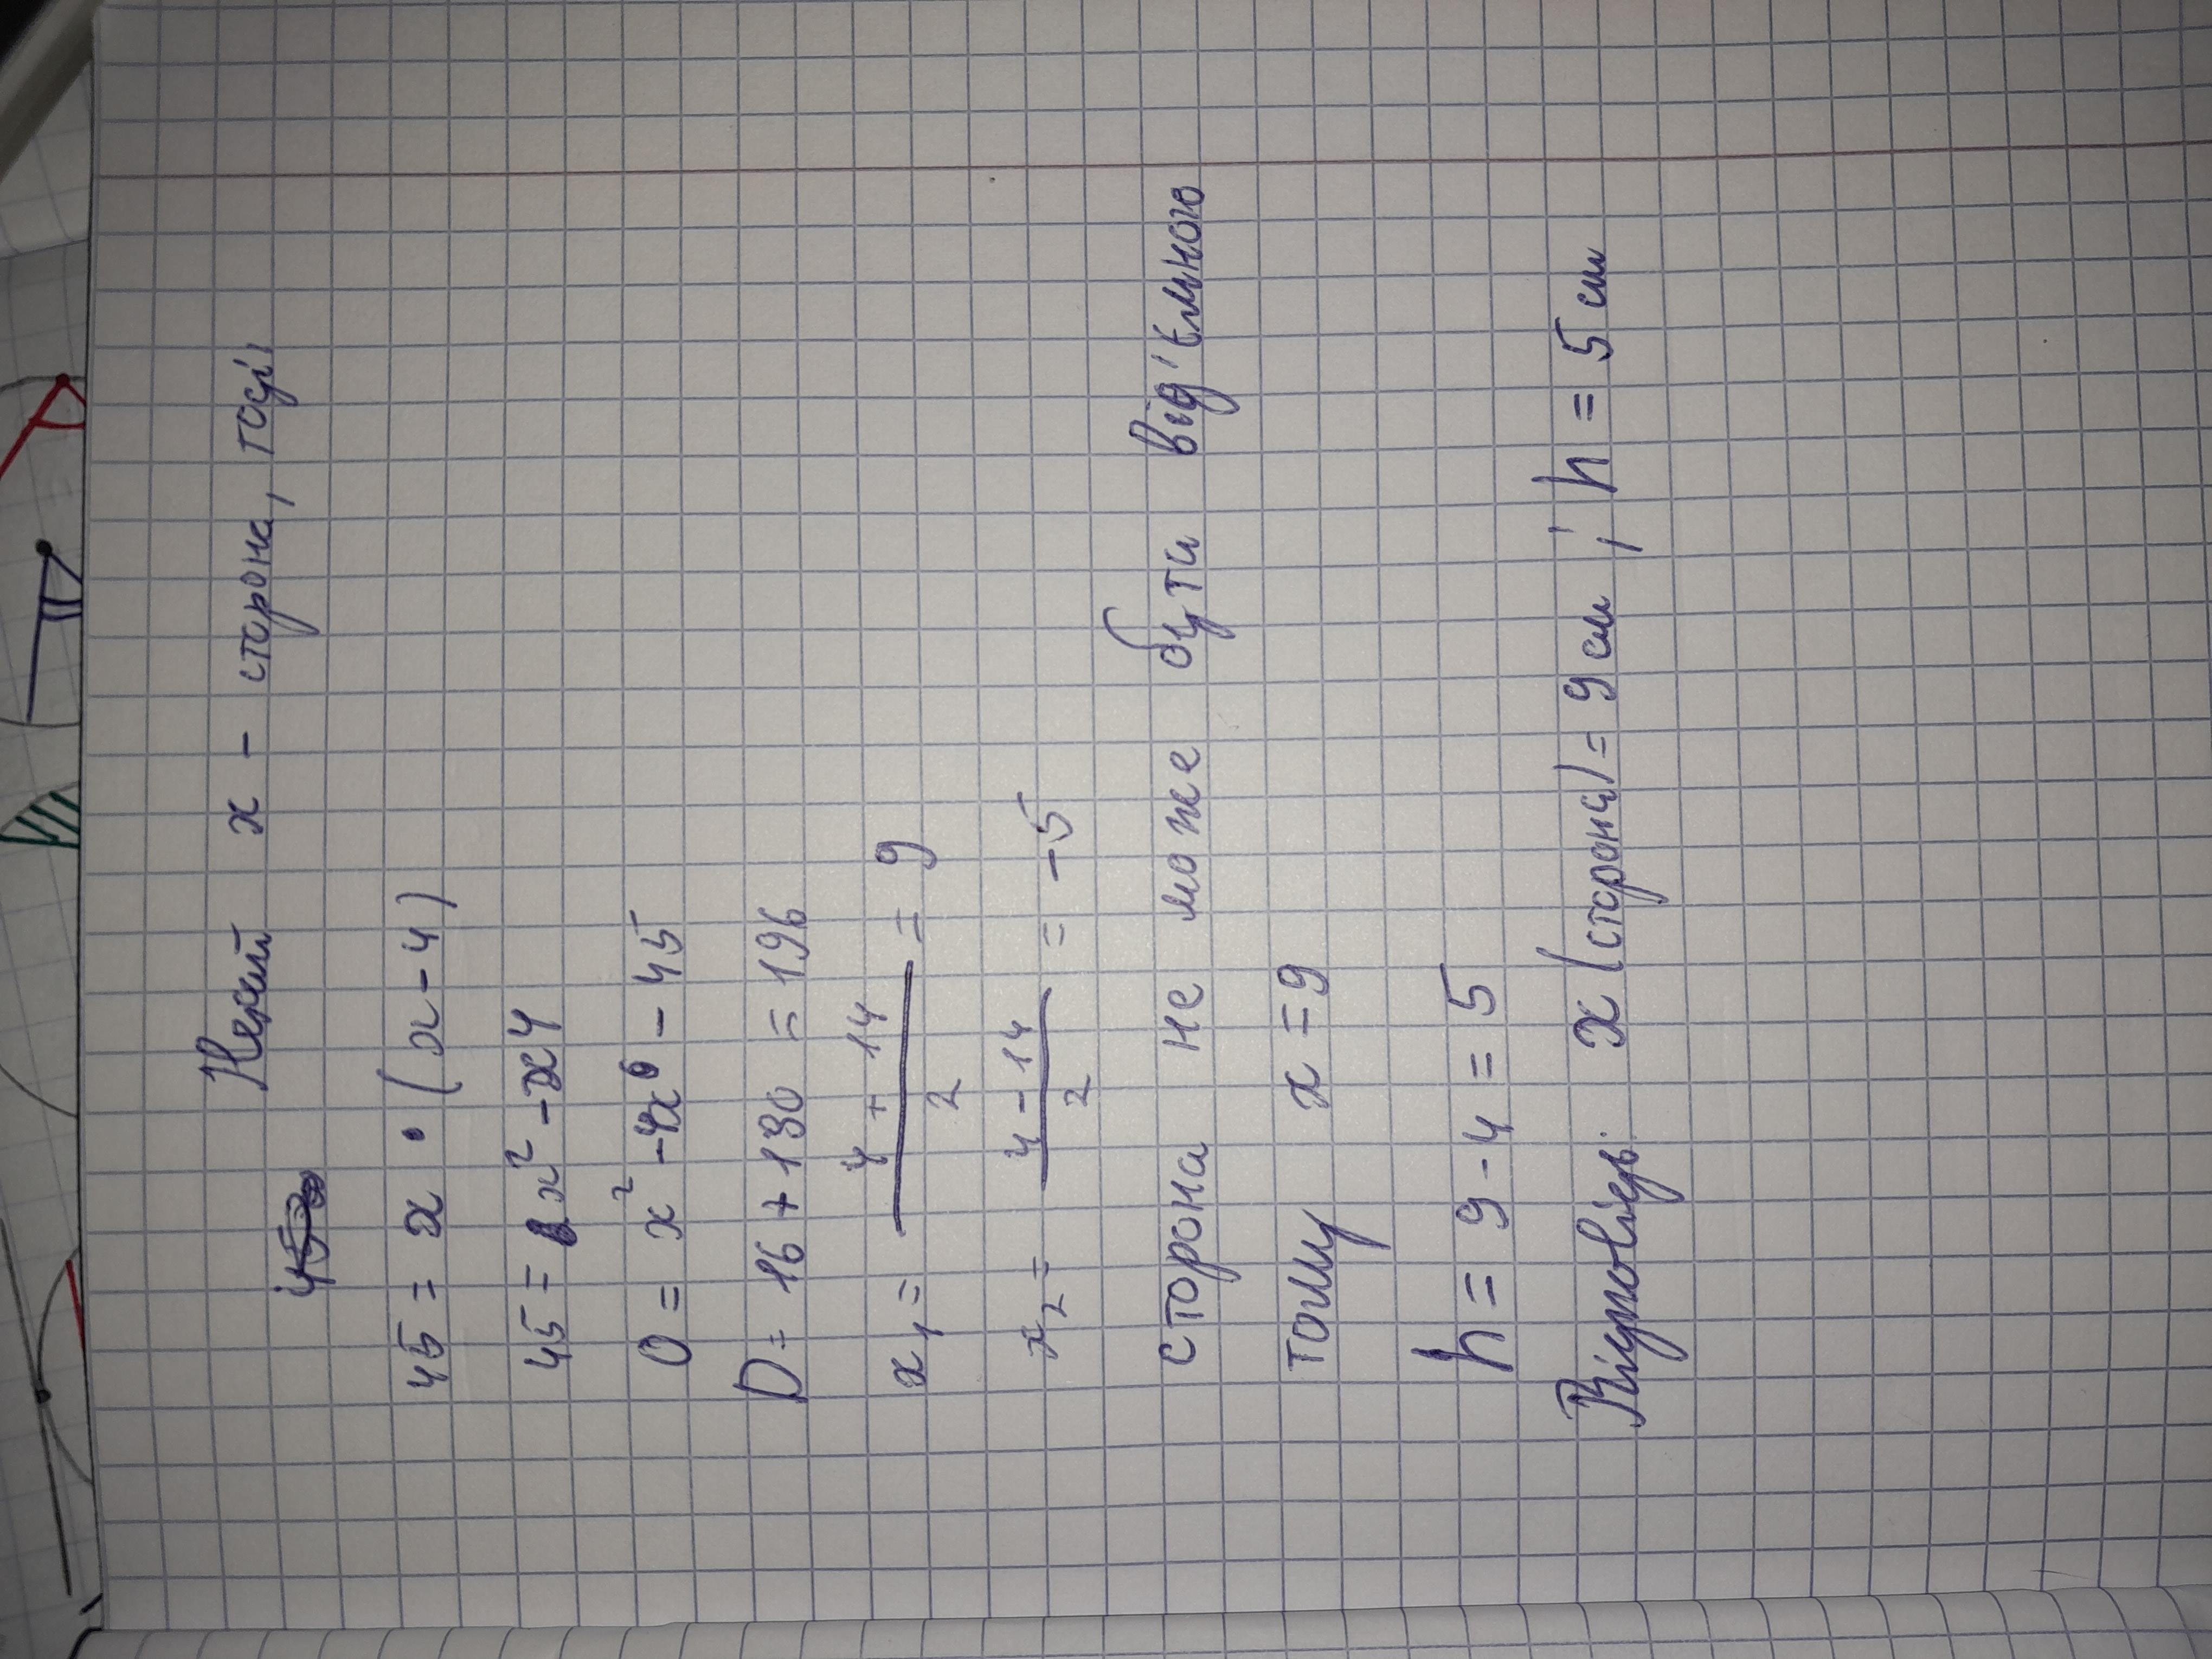 Нехай x - сторона, тоді
45 = x • (x - 4)
45 = x² - x4
0 = x² - 4x - 45
D = 16 + 130 = 196
x₁ = (4 + 14)/2 = 9
x₂ = (4 - 14)/2 = -5
сторона не може бути від'ємною
тому x = 9
h = 9 - 4 = 5
Відповідь: x (сторона) = 9 см ; h = 5 см